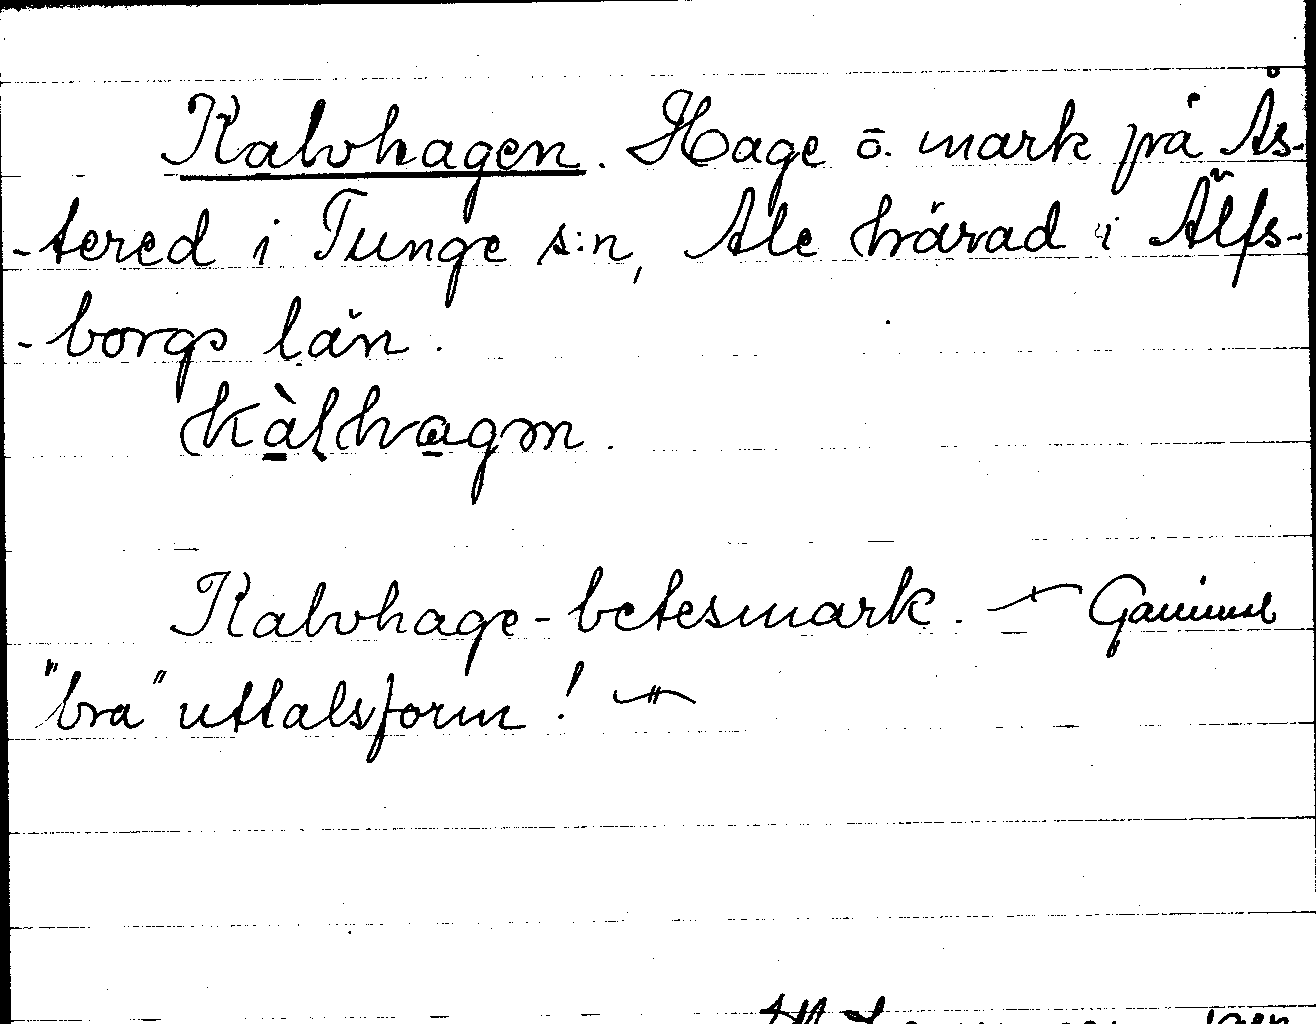 Kalvhagen. Hage ō. mark på Ås-
-tered i Tunge s:n, Ale härad i Älfs-
-borgs län.
kàlhagm.
Kalvhage-betesmark. Gammal
"bra" uttalsform!